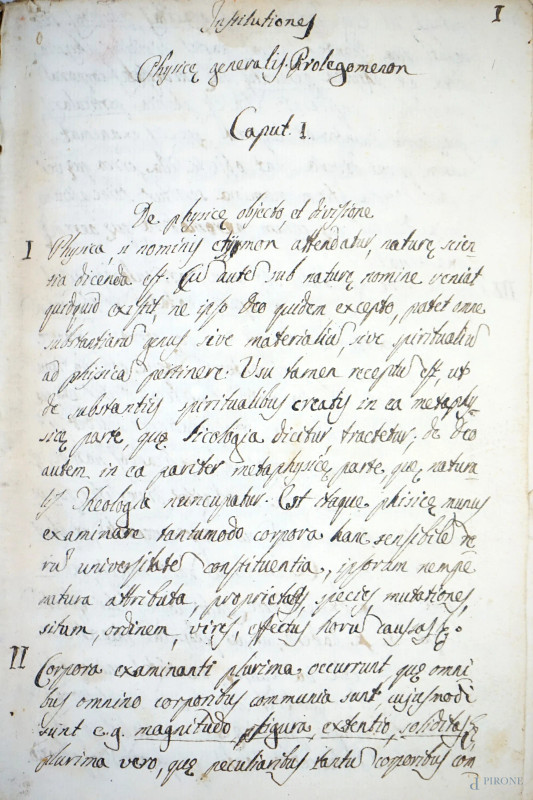 Institutiones
1
Physicę generalis Prolegomenon
Caput. I.
De physicę objecto, et divisione
I Physica, si nominis etymon attendatur, naturę scien-
tia dicenda est. Cū autē sub naturę nomine veniat
quidquid existit ne ipso Deo quidem excepto, patet omne
substantiarū genus sive materialiū, sive spiritualiū
ad physicā pertinere: Usu tamen receptū est, ut
de substantiis spiritualibus creatis in ea metaphy-
sicę parte, quę Sicologia dicitur, tractetur; de Deo
autem in ea pariter metaphysicę parte, quę natura-
lis Theologia nuncupatur. Est itaque phisicę munus
examinare tantumodo corpora hanc sensibilē re
rū universitatē constituentia, ipsorum nempe
natura attributa, proprietates, species mutationes,
situm, ordinem, vires, effectus horū causas
II Corpora examinanti plurima occurrunt, quę omni
bus omnino corporibus communia sunt, cujusmodi
sunt e.g. magnitudo figura, extentio, soliditas
plurima vero, quę peculiaribus tantū corporibus con
PIRONE